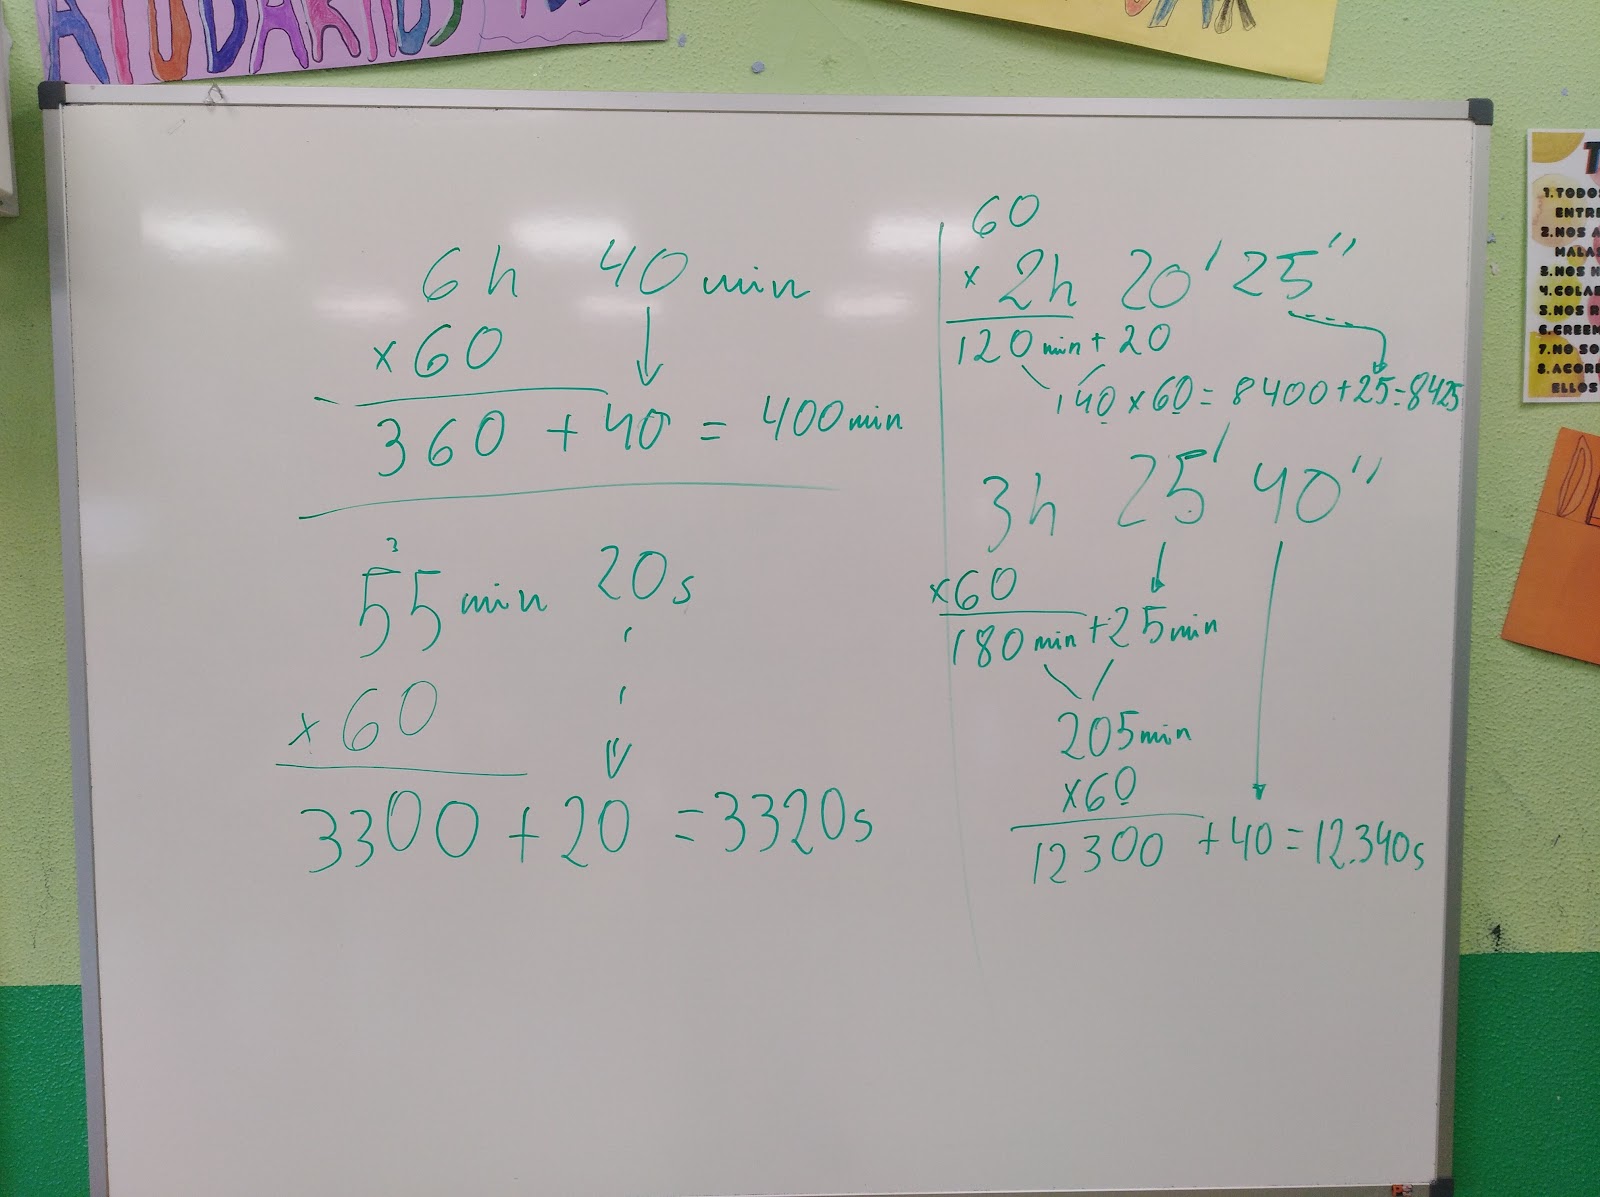 AYUDARNOS
6h 40 min
x 60
360 + 40 = 400 min
3
55 min 20s
x 60
3300 + 20 = 3320s
60
x 2h 20' 25''
120 min + 20
140 x 60 = 8400 + 25 = 8425
3h 25' 40''
x60
180 min + 25 min
205 min
x60
12300 + 40 = 12.340s
1. TODOS
ENTRE
2. NOS
MALAS
3. NOS
4.
5. NOS
6.
7. NO
8.
ELLOS